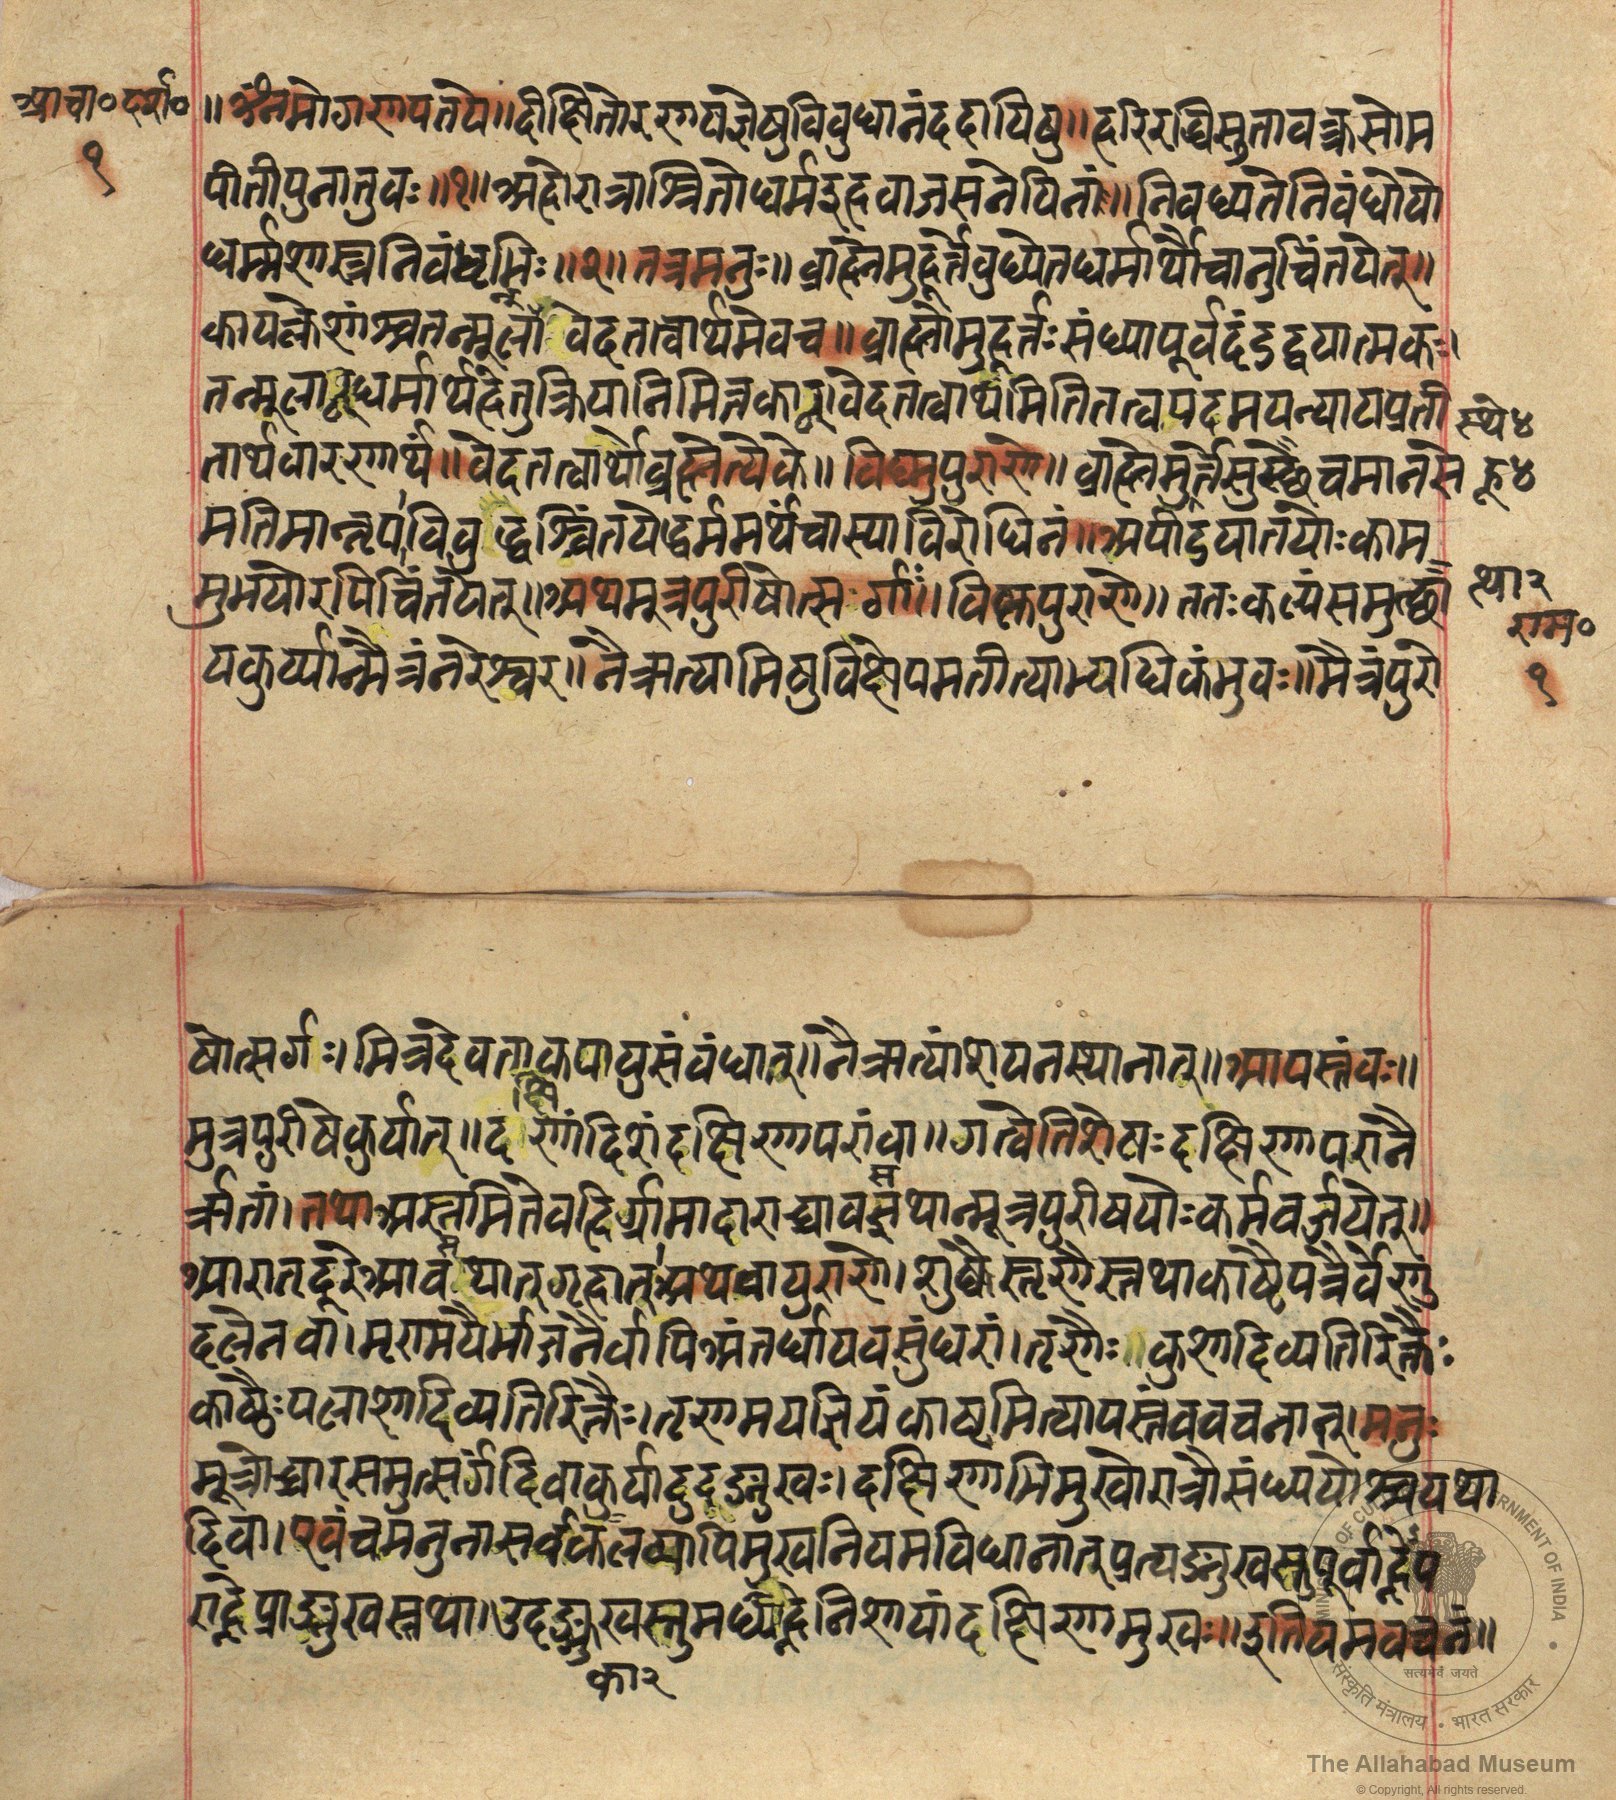 आचा॰दर्श॰
१
॥ॐनमोगणपतये॥दीक्षितोरणयज्ञेषुविवुधानंददायिषु॥हरिरब्धिसुतावक्त्रसोम
पीतीपुनातुवः॥१॥अहोरात्राश्रितोधर्मइहवाजसनेयिनां॥निवध्यतेनिवंधोयो
धर्म्मशास्त्रनिवंधृभिः॥२॥तत्रमनुः॥व्राह्नेमुहूर्त्तेवुध्येतधर्मार्थौचानुचिंतयेत्॥
कायक्लेशांश्चतन्मूलां वेदतत्वार्थमेवच॥व्राह्नोमुहूर्त्तःसंध्यापूर्वदंडद्वयात्मकः।
तन्मूलान्धर्मार्थहेतुक्रियानिमित्तकान्वेदतत्वार्थमितितत्वपदमयन्याटाप्रती
तार्थवारणार्थं॥वेदतत्वार्थोव्रह्नेत्येके॥विष्णुपुराणे॥व्राह्नेमुर्त्तेसुस्छेचमानसे
स्थे४
हू४
मतिमान्नृपविवुद्धश्चिंतयेद्धर्ममर्थंचास्याविरोधिनं॥अपीडयातयोःकाम
मुभयोरपिचिंतयेत्॥अथमूत्रपुरीषोत्सर्गः॥विष्णुपुराणे॥ततःकल्यंसमुत्छा
त्था२
यकुर्य्यान्मैत्रंनरेश्वर॥नैऋत्यामिषुविक्षेपमतीत्याभ्यधिकंभुवः॥मैत्रंपुरी
राम॰
१
षोत्सर्गः।मित्रदेवताकपायुसंवंधात्॥नैऋत्यांशयनस्थानात्॥आपस्तंवः॥
क्षि
मुत्रपुरीषेकुर्यात्॥दणांदिशंदक्षिणापरांवा॥गत्वेतिशेषःदक्षिणापरानै
र्ऋतां।तथाअस्तमितेवहिर्ग्रामादाराद्वावसथान्मूत्रपुरीषयोःकर्मवर्जयेत्॥
स
आरातदूरेआवथात्गृहात्अथवापुराणे।शुष्कैस्तृणैस्तथाकाष्ठैपत्रैर्वेणु
स
दलेनवा।मृण्मयैर्भाजनैर्वापिअंतर्धायवसुंधरां।तृणैः।कुशादिव्यतिरिक्तैः
काष्ठैःपलाशादिव्यतिरिक्तैः।तृणमयज्ञियंकाष्ठमित्यापस्तंववचनात्।मनुः
मूत्रोच्चारसमुत्सर्गंदिवाकुर्यादुदङ्मुखः।दक्षिणाभिमुखोरात्रौसंध्ययोश्चयथा
दिवा।एवंचमनुनासर्वकलव्यापिमुखनियमविधानात्प्रत्यङ्मुखस्तुपूर्वाह्णेप
राह्णेप्राङ्मुखस्तथा।उदङ्मुखस्तुमध्याह्नेनिशायांदक्षिणामुखः॥इतियमवचनं॥
का२
The Allahabad Museum
© Copyright, All rights reserved.
सत्यमेव जयते
संस्कृति मंत्रालय • भारत सरकार